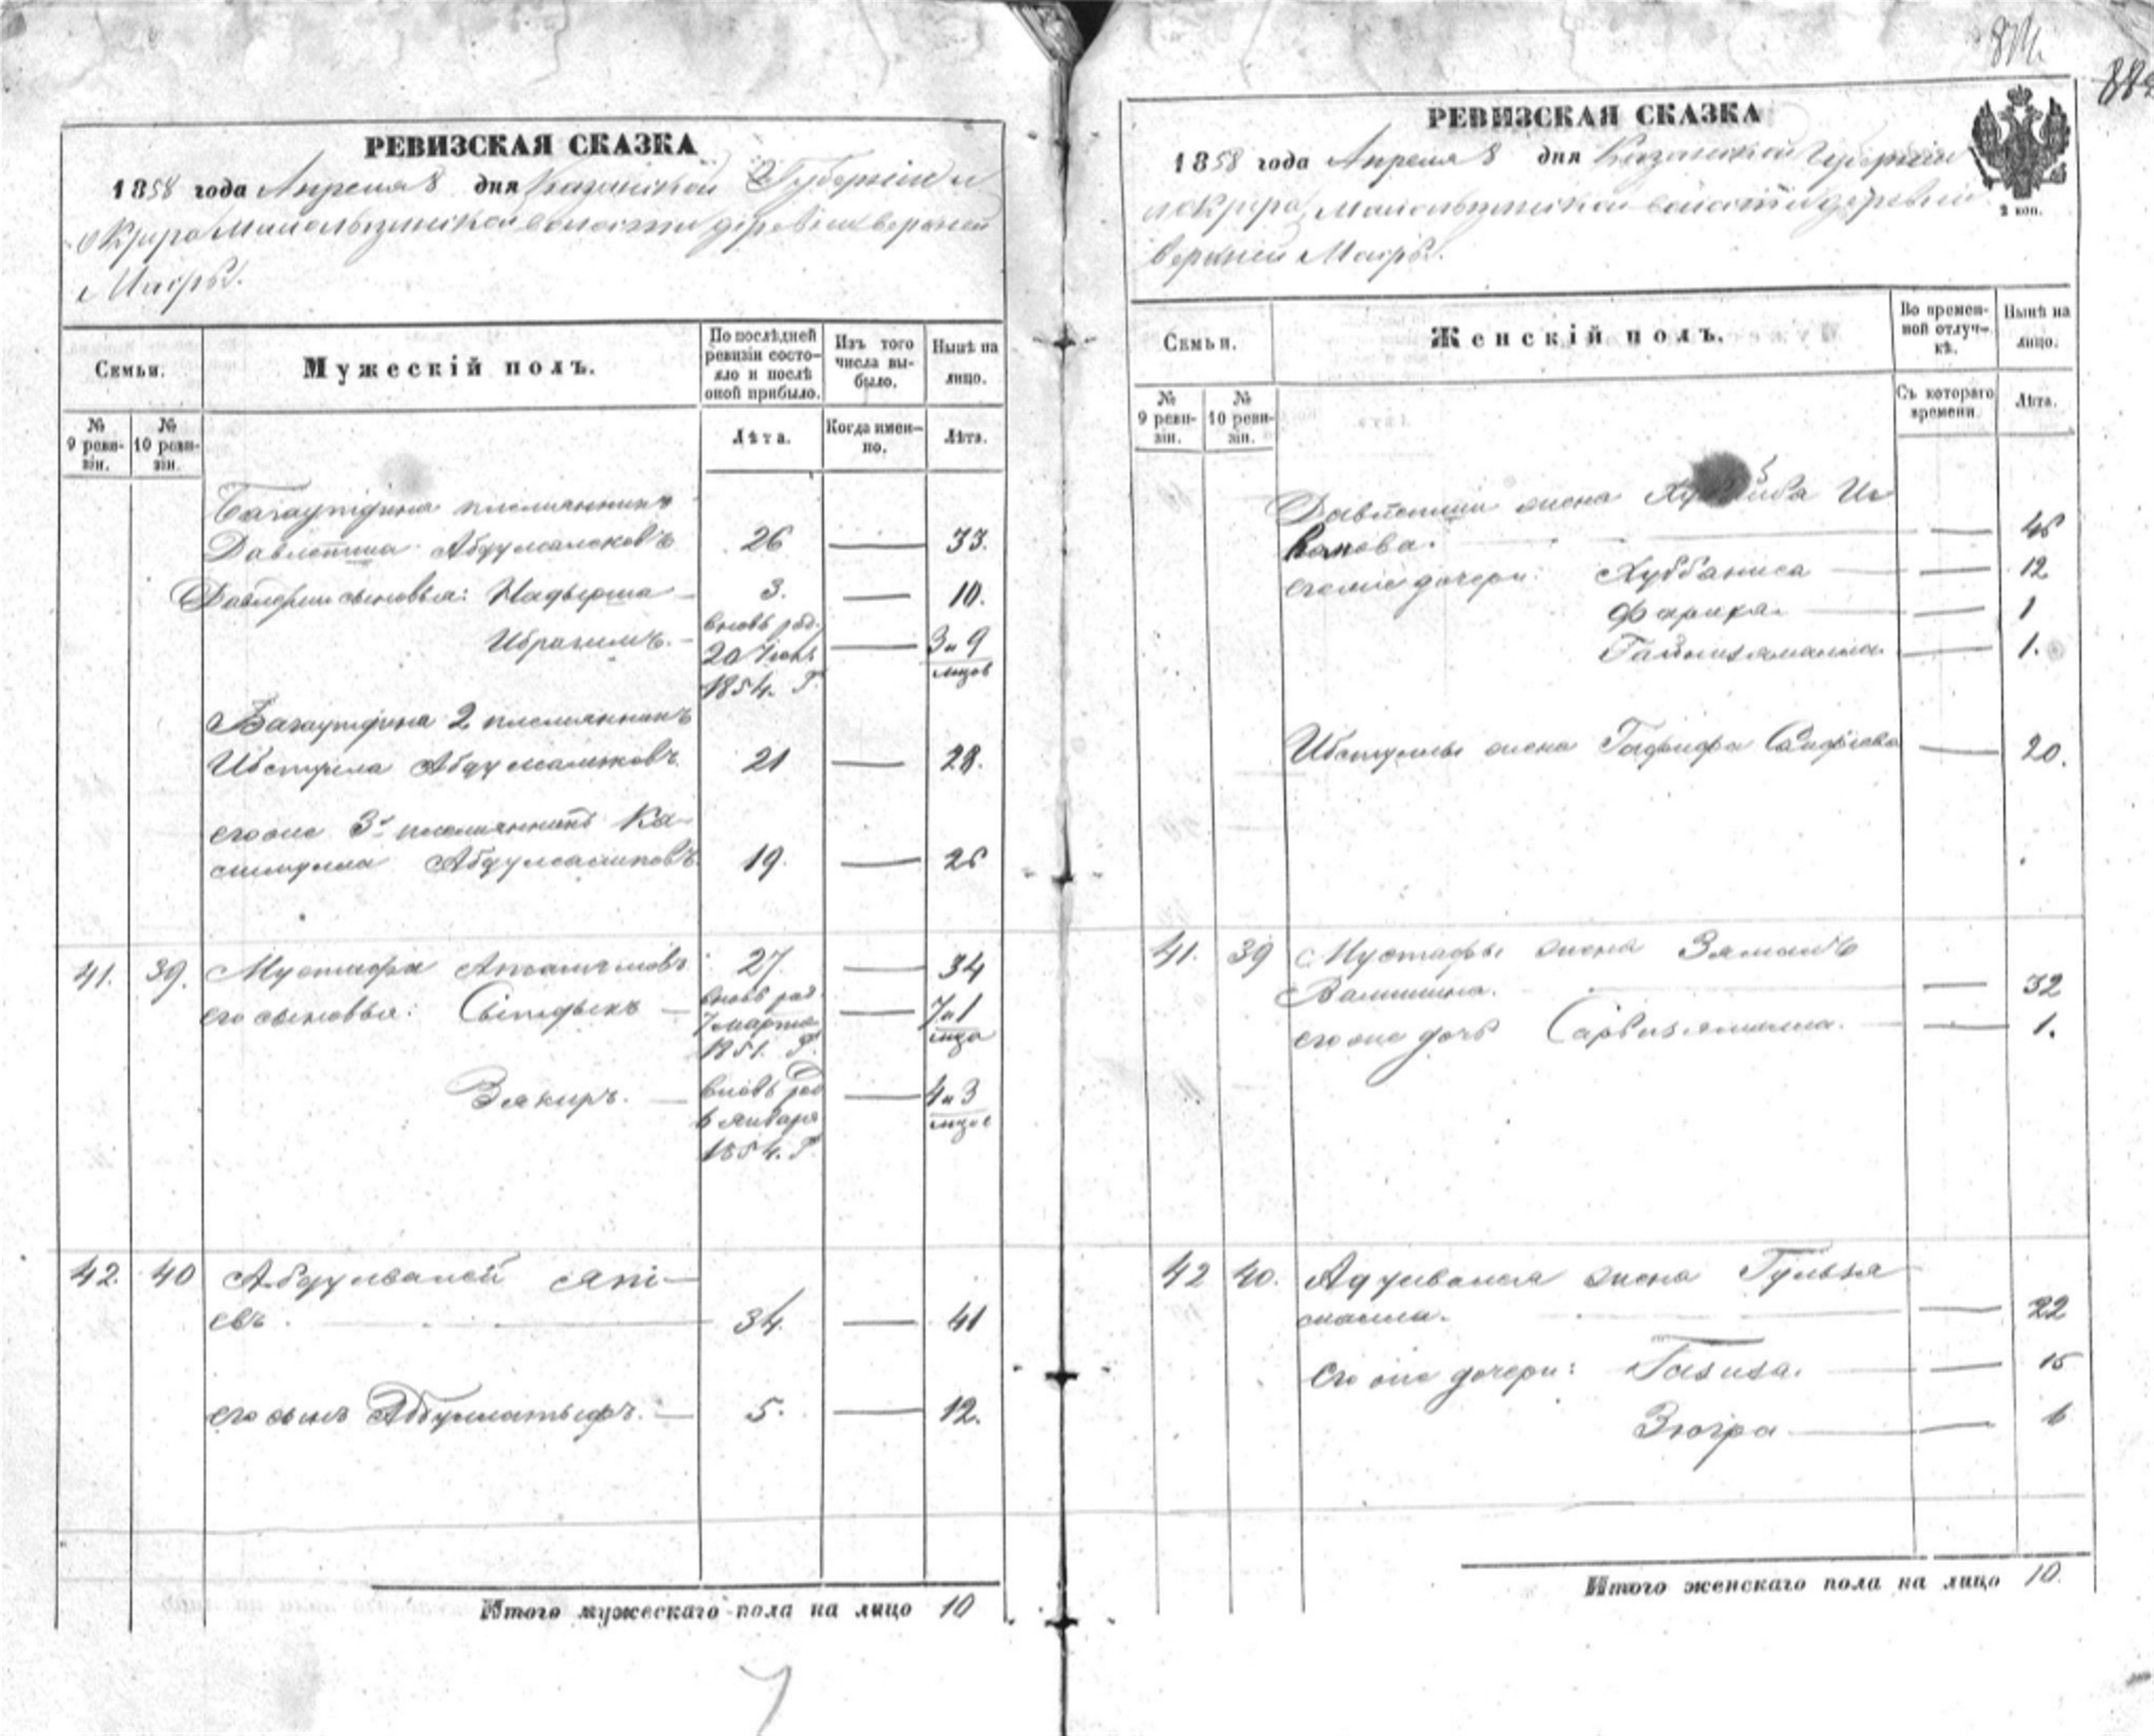 РЕВИЗСКАЯ СКАЗКА
1858 года Апреля 8 дня Казанской Губернии и
округа волости деревни верхней
Масры.
Семьи.
Мужескій полъ.
По послѣдней ревизіи состояло и послѣ оной прибыло.
Изъ того числа выбыло.
Нынѣ на лицо.
№ 9 ревизіи.
№ 10 ревизіи.
Лѣта.
Когда именно.
Лѣта.
Багаутдина племянникъ
Давлетша Абдулмалековъ 26 — 33.
Давлетши сыновья: Надырша — 3. — 10.
Ибрагимъ. — вновь род. 20 1854. Г. — 3 и 9 мцов
Багаутдина 2 племянникъ
Ибетулла Абдулмаликовъ 21 — 28.
его же 3й племянникъ Ка-
симулла Абдулмаликовъ 19. — 26
41. 39. Мустафа 27 — 34
его сыновья: Сейтдыкъ — вновь род. 7 марта 1851. Г. — 7 и 1 мца
Зякиръ. — вновь род 6 января 1854. Г. — 4 и 3 мцов
42. 40 Абдулвалей Апі-
евъ. — 34. — 41
его сынъ Абдуллатыфъ. — 5. — 12.
Итого мужескаго пола на лицо 10
874
882
РЕВИЗСКАЯ СКАЗКА
2 коп.
1858 года Апреля 8 дня Казанской Губерніи
и округа волости деревни
верхней Масры.
Семьи.
Женскій полъ.
Во временной отлучкѣ.
Нынѣ на лицо.
№ 9 ревизіи.
№ 10 ревизіи.
Съ котораго времени.
Лѣта.
Давлетши жена Ик
— 46
его же дочери: Хуббаниса — 12
Фариха — 1
— 1.
Ибетуллы жена Гафифа Сайфіева — 20.
41. 39 Мустафы жена Зямилъ
Валишина. — 32
его же дочь — 1.
42 40. Адулвалея жена Гульзя
— 22
его же дочери: Газиза. — 15
Зюгра — 6
Итого женскаго пола на лицо 10.